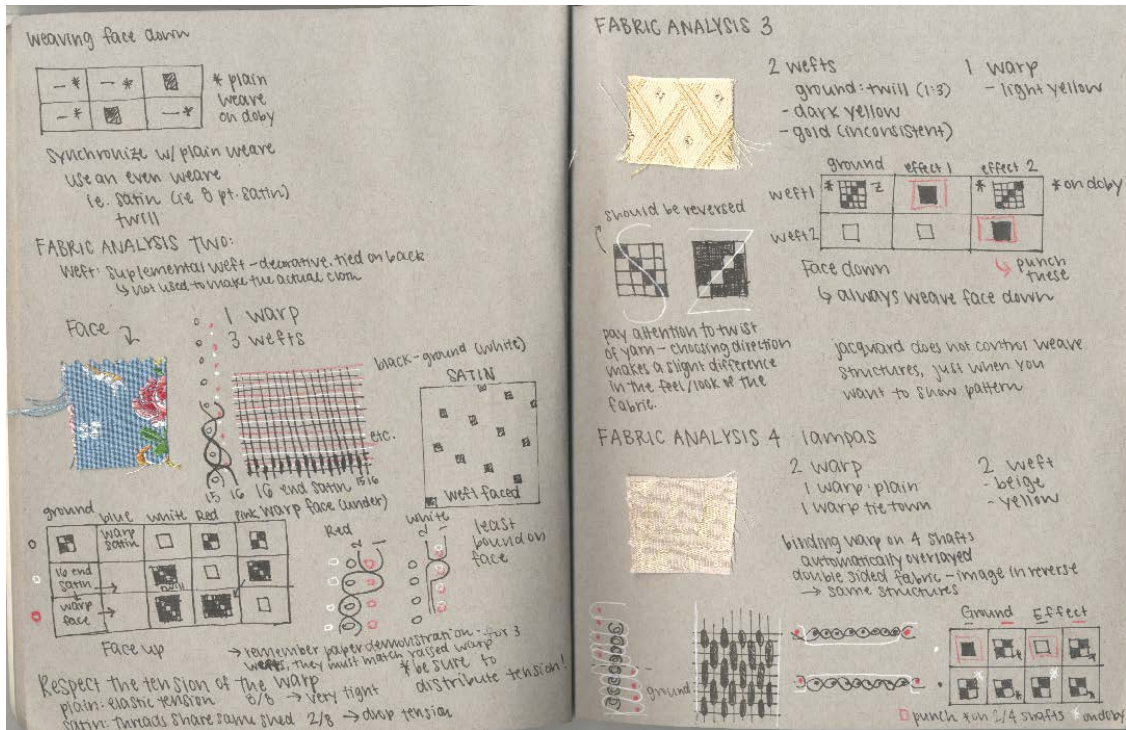 weaving face down
* plain
weave
on doby
synchronize w/ plain weave
use an even weave
ie. satin (ie 8 pt. satin)
twill
FABRIC ANALYSIS TWO:
weft: suplemental weft - decorative, tied on back
↳ not used to make the actual cloth
Face
1 warp
3 wefts
black-ground (white)
SATIN
etc.
weft faced
15 16 16 end satin 15 16
warp face (under)
ground blue white Red pink
warp
satin
16 end
satin →
twill
warp →
face
Face up
Red
2 1
white
2 1
least
bound on
face
→ remember paper demonstration - for 3
wefts, they must match raised warp
* be sure to
distribute tension!
Respect the tension of the warp
plain: elastic tension 8/8 → very tight
satin: threads share same shed 2/8 → drop tension
FABRIC ANALYSIS 3
2 wefts
ground: twill (1:3)
- dark yellow
- gold (inconsistent)
1 warp
- light yellow
ground effect 1 effect 2
weft1 * Z * * on doby
weft2
should be reversed
S Z
Face down
↳ always weave face down
↳ punch
these
pay attention to twist
of yarn - choosing direction
makes a slight difference
in the feel/look of the
fabric.
jacquard does not control weave
structures, just when you
want to show pattern
FABRIC ANALYSIS 4 : lampas
2 warp
1 warp: plain
1 warp tie town
2 weft
- beige
- yellow
binding warp on 4 shafts
automatically overlayed
double sided fabric - image in reverse
→ same structures
ground
Ground Effect
punch * on 2/4 shafts * on doby